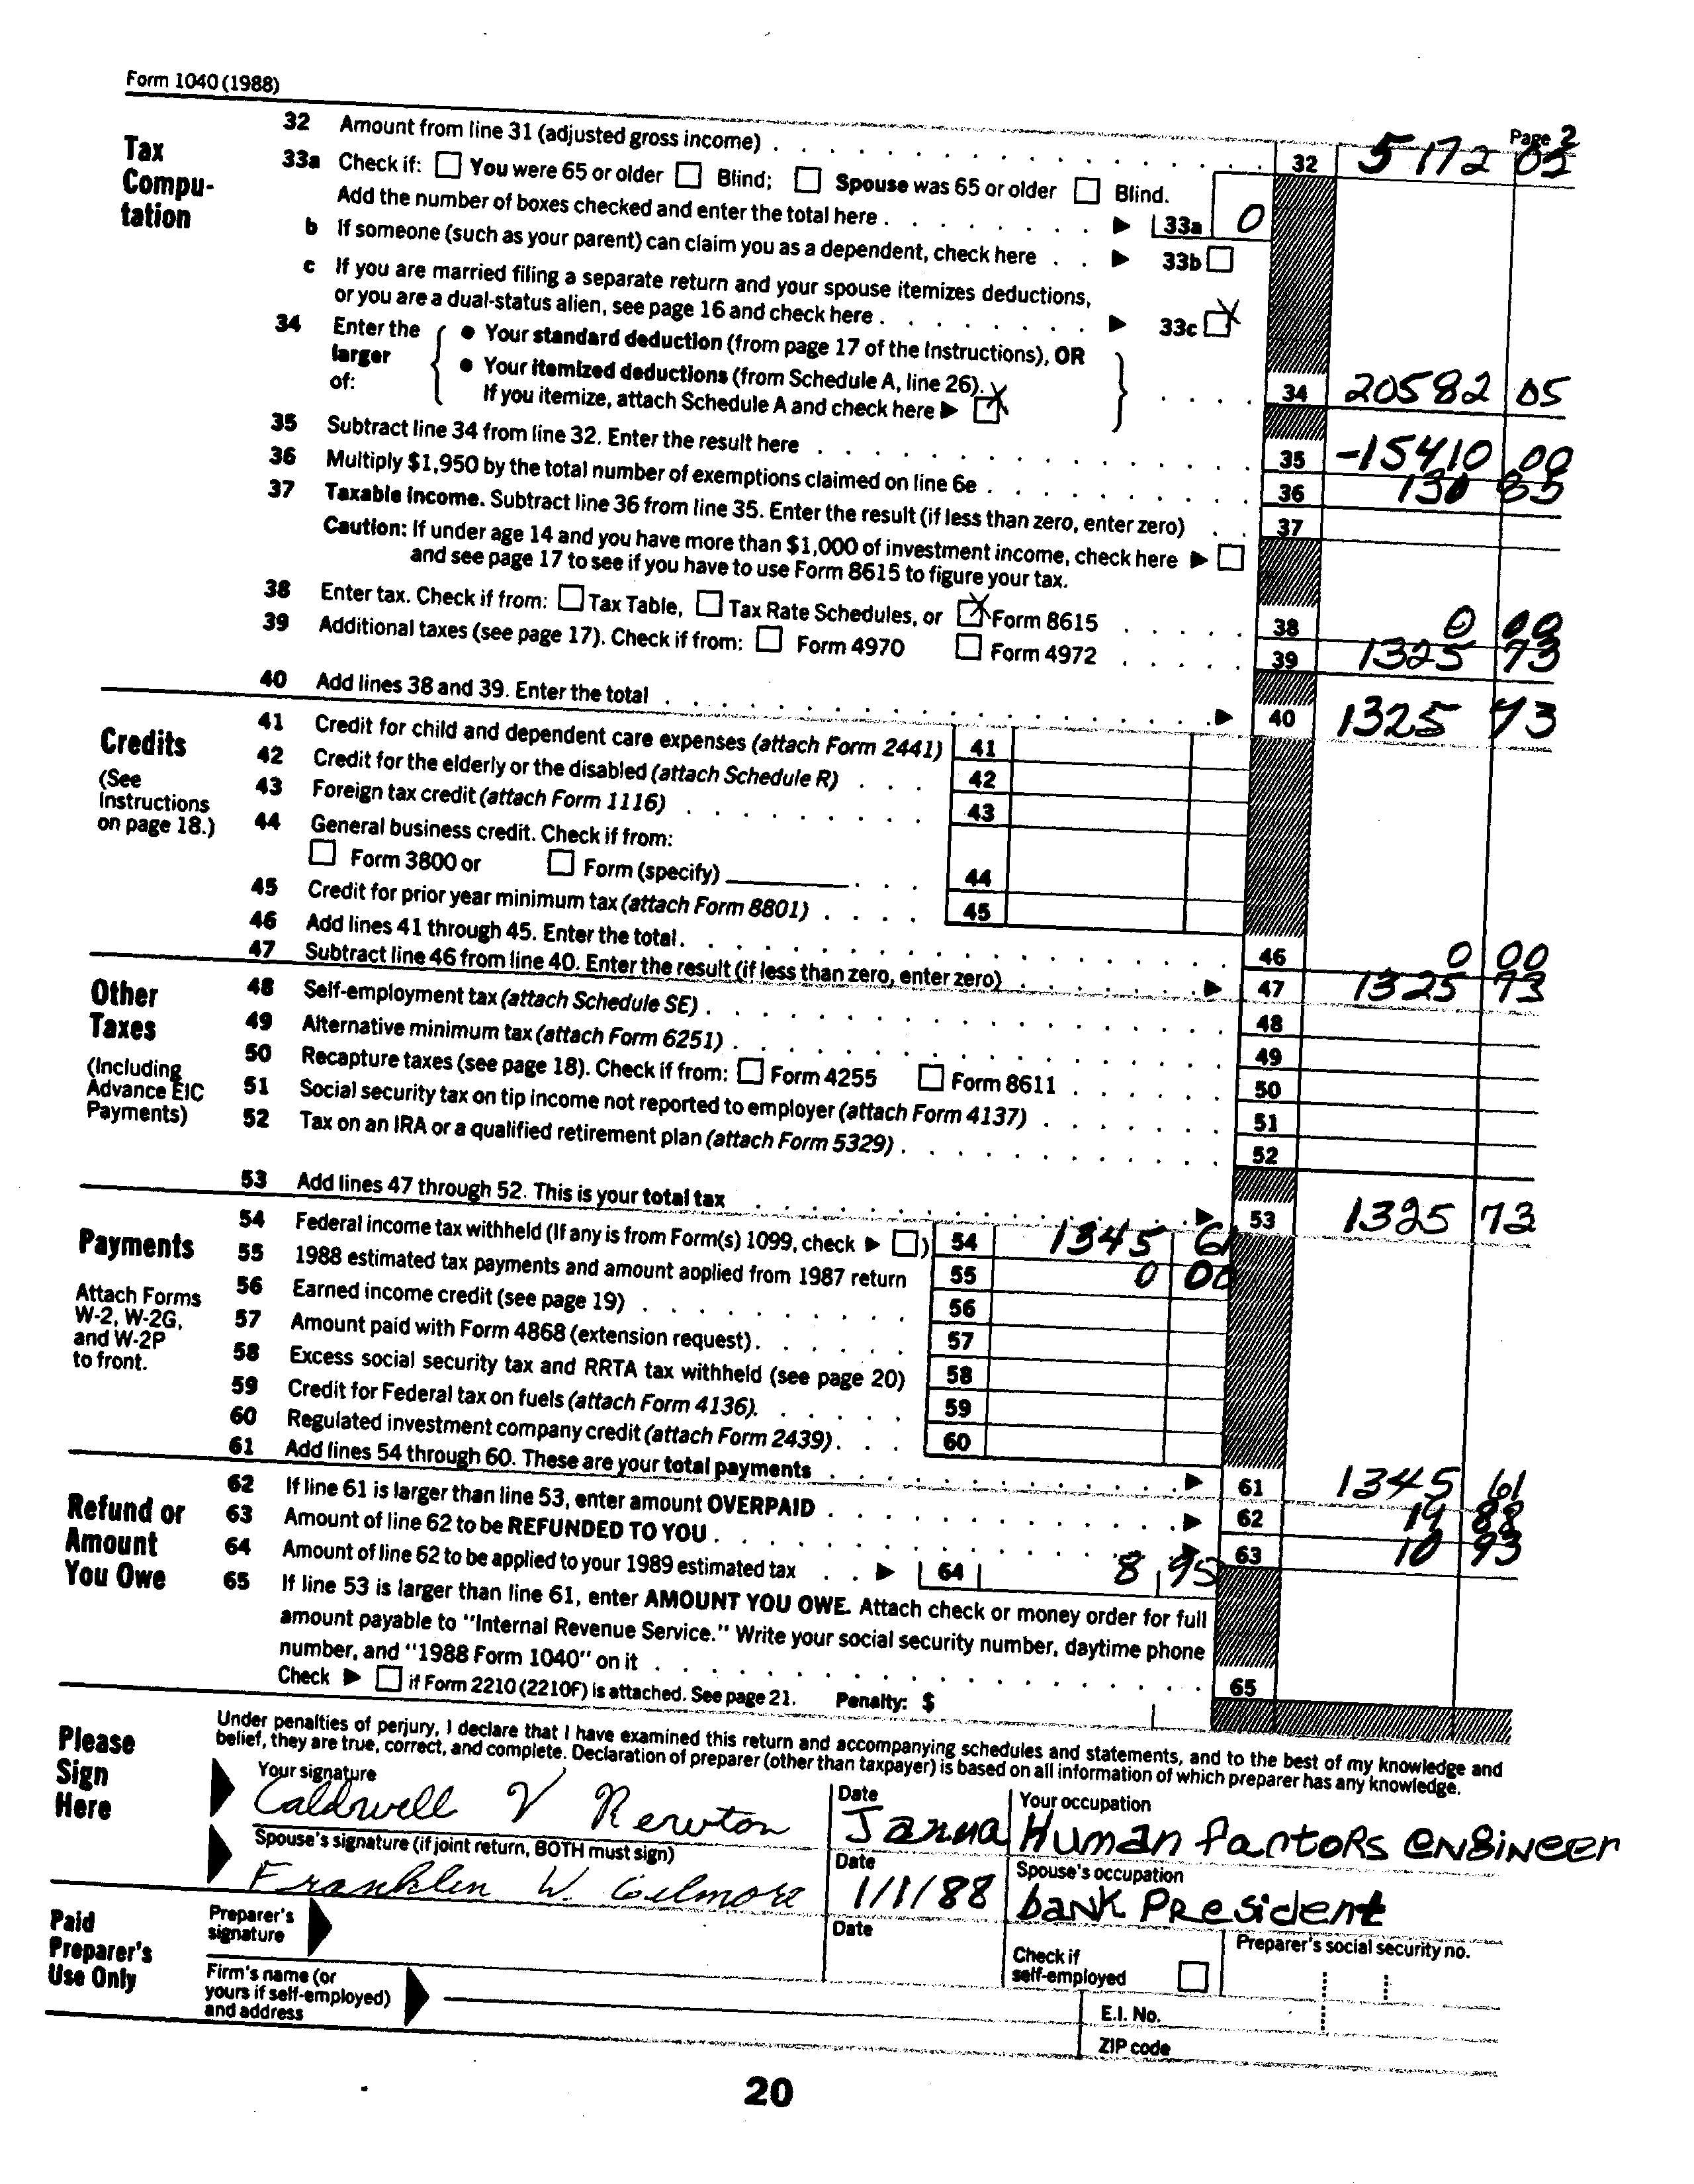 Form 1040 (1988)
Page 2
Tax Computation
32 Amount from line 31 (adjusted gross income) . . . 32 5172 05
33a Check if: ☐ You were 65 or older ☐ Blind; ☐ Spouse was 65 or older ☐ Blind.
Add the number of boxes checked and enter the total here . . . ▶ 33a 0
b If someone (such as your parent) can claim you as a dependent, check here . . ▶ 33b ☐
c If you are married filing a separate return and your spouse itemizes deductions,
or you are a dual-status alien, see page 16 and check here . . . ▶ 33c ☒
34 Enter the larger of:
• Your standard deduction (from page 17 of the Instructions), OR
• Your itemized deductions (from Schedule A, line 26).
If you itemize, attach Schedule A and check here ▶ ☒ . . . 34 20582 05
35 Subtract line 34 from line 32. Enter the result here . . . 35 -15410 00
36 Multiply $1,950 by the total number of exemptions claimed on line 6e . . . 36 130 85
37 Taxable income. Subtract line 36 from line 35. Enter the result (if less than zero, enter zero) . . 37
Caution: If under age 14 and you have more than $1,000 of investment income, check here ▶ ☐
and see page 17 to see if you have to use Form 8615 to figure your tax.
38 Enter tax. Check if from: ☐ Tax Table, ☐ Tax Rate Schedules, or ☒ Form 8615 . . . 38 0 00
39 Additional taxes (see page 17). Check if from: ☐ Form 4970 ☐ Form 4972 . . . 39 1325 73
40 Add lines 38 and 39. Enter the total . . . ▶ 40 1325 73
Credits
(See Instructions on page 18.)
41 Credit for child and dependent care expenses (attach Form 2441) 41
42 Credit for the elderly or the disabled (attach Schedule R) . . . 42
43 Foreign tax credit (attach Form 1116) . . . 43
44 General business credit. Check if from:
☐ Form 3800 or ☐ Form (specify) . . . 44
45 Credit for prior year minimum tax (attach Form 8801) . . . 45
46 Add lines 41 through 45. Enter the total . . . 46 0 00
47 Subtract line 46 from line 40. Enter the result (if less than zero, enter zero) . . . ▶ 47 1325 73
Other Taxes
(Including Advance EIC Payments)
48 Self-employment tax (attach Schedule SE) . . . 48
49 Alternative minimum tax (attach Form 6251) . . . 49
50 Recapture taxes (see page 18). Check if from: ☐ Form 4255 ☐ Form 8611 . . . 50
51 Social security tax on tip income not reported to employer (attach Form 4137) . . . 51
52 Tax on an IRA or a qualified retirement plan (attach Form 5329) . . . 52
53 Add lines 47 through 52. This is your total tax . . . ▶ 53 1325 73
Payments
Attach Forms W-2, W-2G, and W-2P to front.
54 Federal income tax withheld (If any is from Form(s) 1099, check ▶ ☐) 54 1345 61
55 1988 estimated tax payments and amount applied from 1987 return 55 0 00
56 Earned income credit (see page 19) . . . 56
57 Amount paid with Form 4868 (extension request) . . . 57
58 Excess social security tax and RRTA tax withheld (see page 20) 58
59 Credit for Federal tax on fuels (attach Form 4136). . . . 59
60 Regulated investment company credit (attach Form 2439) . . . 60
61 Add lines 54 through 60. These are your total payments . . . ▶ 61 1345 61
Refund or Amount You Owe
62 If line 61 is larger than line 53, enter amount OVERPAID . . . ▶ 62 19 88
63 Amount of line 62 to be REFUNDED TO YOU . . . ▶ 63 10 93
64 Amount of line 62 to be applied to your 1989 estimated tax . . ▶ 64 8 95
65 If line 53 is larger than line 61, enter AMOUNT YOU OWE. Attach check or money order for full
amount payable to "Internal Revenue Service." Write your social security number, daytime phone
number, and "1988 Form 1040" on it . . . 65
Check ▶ ☐ if Form 2210 (2210F) is attached. See page 21. Penalty: $
Please Sign Here
Under penalties of perjury, I declare that I have examined this return and accompanying schedules and statements, and to the best of my knowledge and
belief, they are true, correct, and complete. Declaration of preparer (other than taxpayer) is based on all information of which preparer has any knowledge.
Your signature Date Your occupation
Caldwell V Newton Janua Human factors engineer
Spouse's signature (if joint return, BOTH must sign) Date Spouse's occupation
Franklin W. Gilmore 1/1/88 bank President
Paid Preparer's Use Only
Preparer's signature Date Check if self-employed ☐ Preparer's social security no.
Firm's name (or yours if self-employed) and address
E.I. No.
ZIP code
20